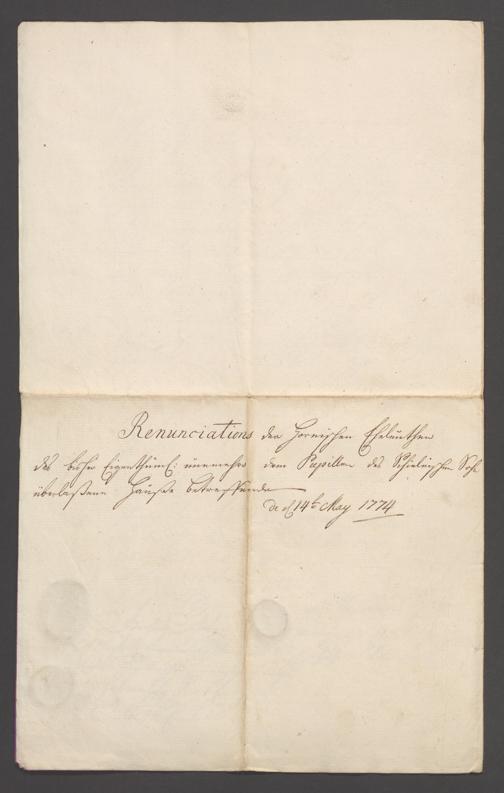 Renunciations der Hornischen Eheleuthen
des bisher Eigenthüml: nunmehro dem Pupillen des
überlaßene Hauße betreffende
de d. 14t May 1774